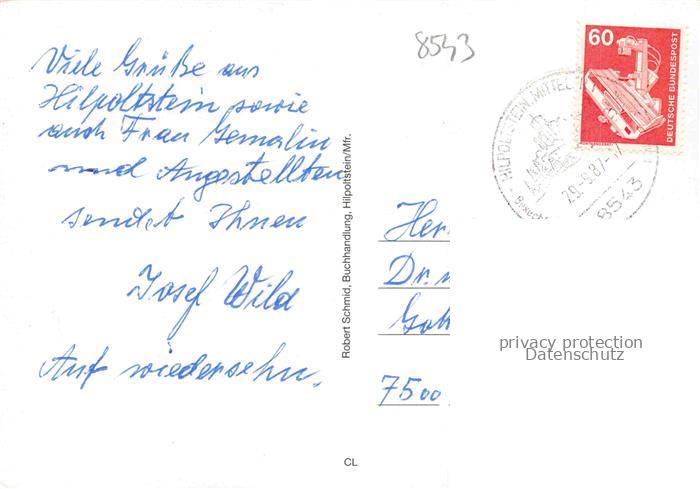 Viele Grüße aus
Hilpoltstein sowie
auch Frau Gemalin
und Angestellten
sendet Ihnen
Josef Wild
Auf wiedersehn.
Robert Schmid, Buchhandlung, Hilpoltstein/Mfr.
CL
8543
60
DEUTSCHE BUNDESPOST
HILPOLTSTEIN, MITTEL
29.-9.87-17
8543
Her
Dr.
7500
privacy protection
Datenschutz